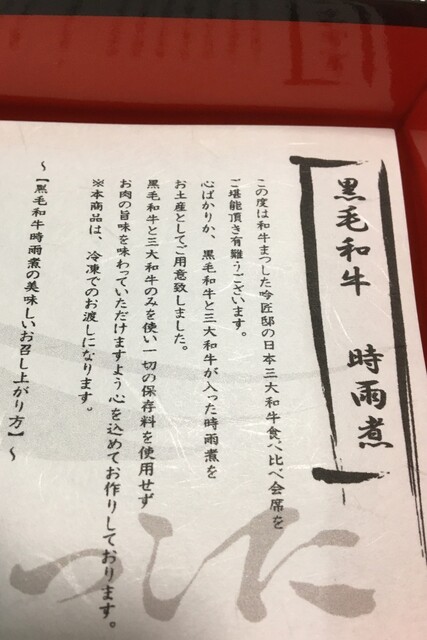 黒毛和牛 時雨煮
この度は和牛まつした吟匠邸の日本三大和牛食べ比べ会席を
ご堪能頂き有難うございます。
心ばかりか、黒毛和牛と三大和牛が入った時雨煮を
お土産としてご用意致しました。
黒毛和牛と三大和牛のみを使い一切の保存料を使用せず
お肉の旨味を味わっていただけますよう心を込めてお作りしております。
※本商品は、冷凍でのお渡しになります。
～【黒毛和牛時雨煮の美味しいお召し上がり方】～
つした